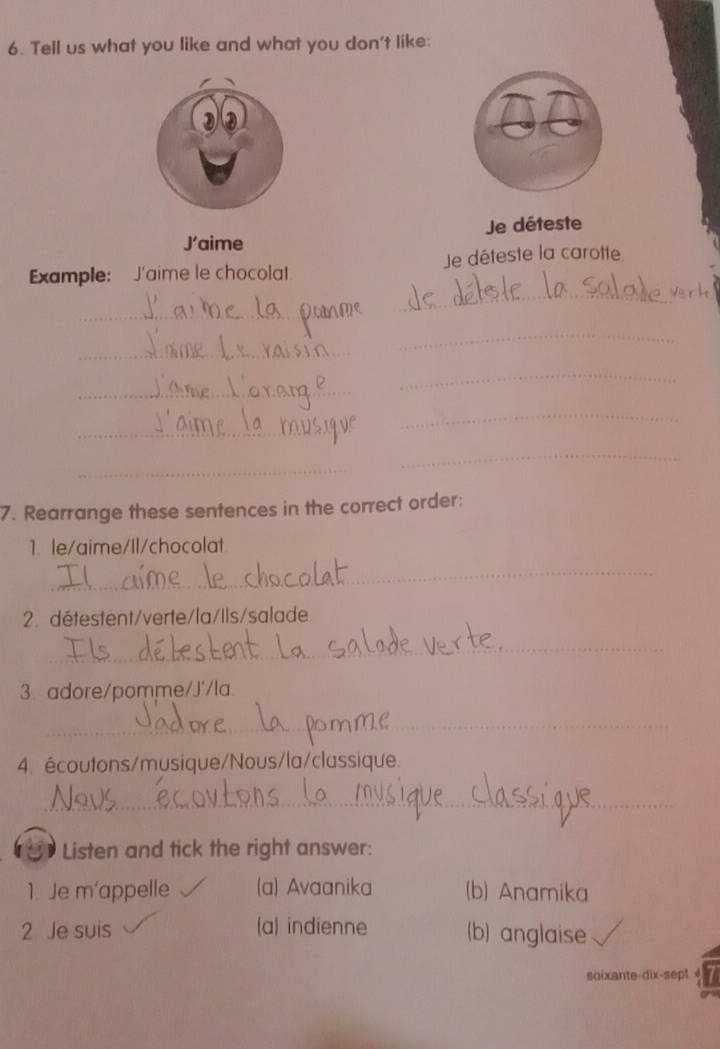 6. Tell us what you like and what you don't like:
J'aime
Je déteste
Example: J'aime le chocolat
Je déteste la carotte.
J'aime la pomme
Je déteste la salade verte
J'aime le raisin
J'aime l'orange
J'aime la musique
7. Rearrange these sentences in the correct order:
1. le/aime/Il/chocolat.
Il aime le chocolat
2. détestent/verte/la/Ils/salade
Ils détestent la salade verte.
3. adore/pomme/J'/la.
J'adore la pomme
4. écoutons/musique/Nous/la/classique.
Nous écoutons la musique classique
Listen and tick the right answer:
1. Je m'appelle ✓ (a) Avaanika (b) Anamika
2. Je suis ✓ (a) indienne (b) anglaise ✓
soixante-dix-sept